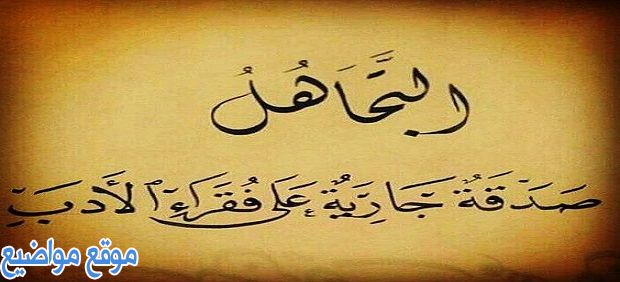 التَّجَاهُلُ
صَدَقَةٌ جَارِيَةٌ عَلَى فُقَرَاءِ الأَدَبِ
موقع مواضيع